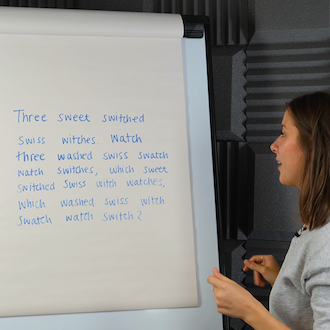 Three sweet switched
swiss witches watch
three washed swiss swatch
watch switches, which sweet
switched swiss witch watches,
which washed swiss witch
swatch watch switch?